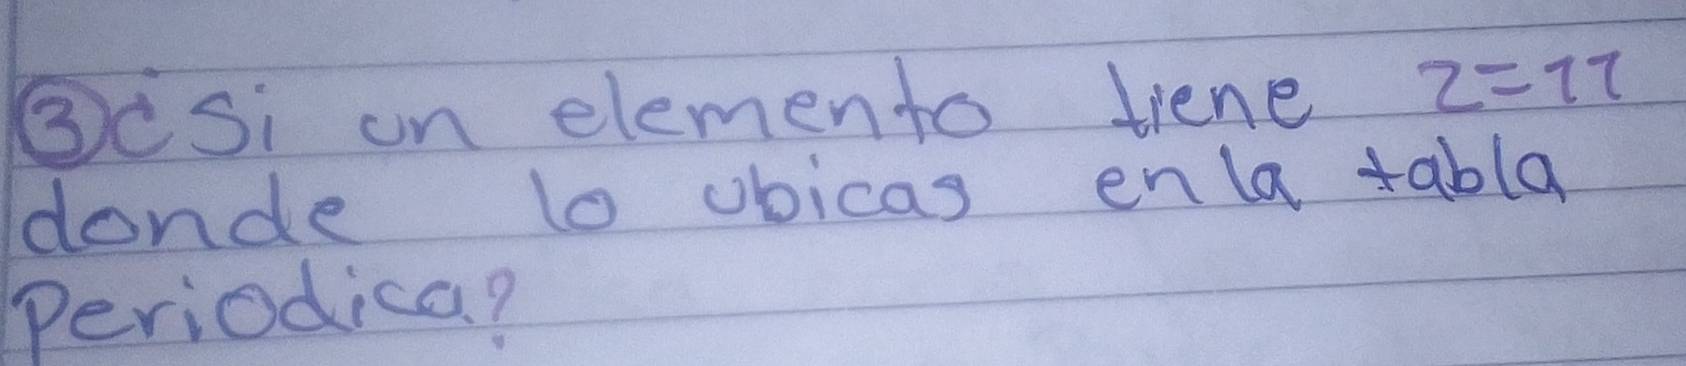 ③¿Si un elemento tiene Z=11
donde lo ubicas en la tabla
Periodica?